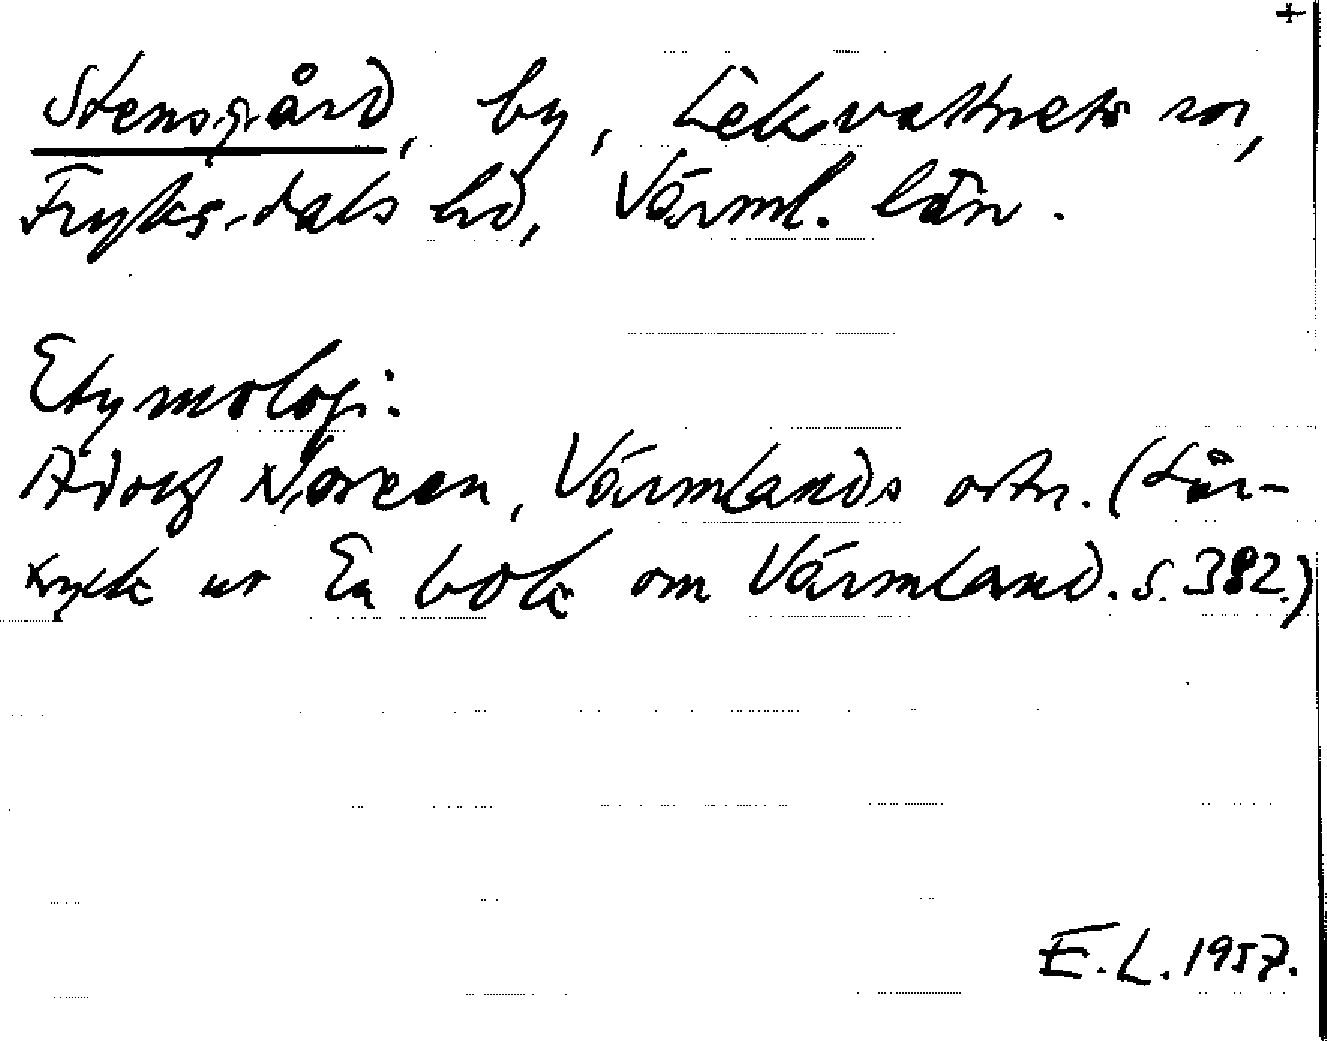 +
Stensgård, by, Lekvattnets sn,
Fryksdals hd, Värml. län.
Etymologi:
Adolf Noreen, Värmlands ortn. (Sär-
tryck ur En bok om Värmland. S. 382.)
E.L. 1957.